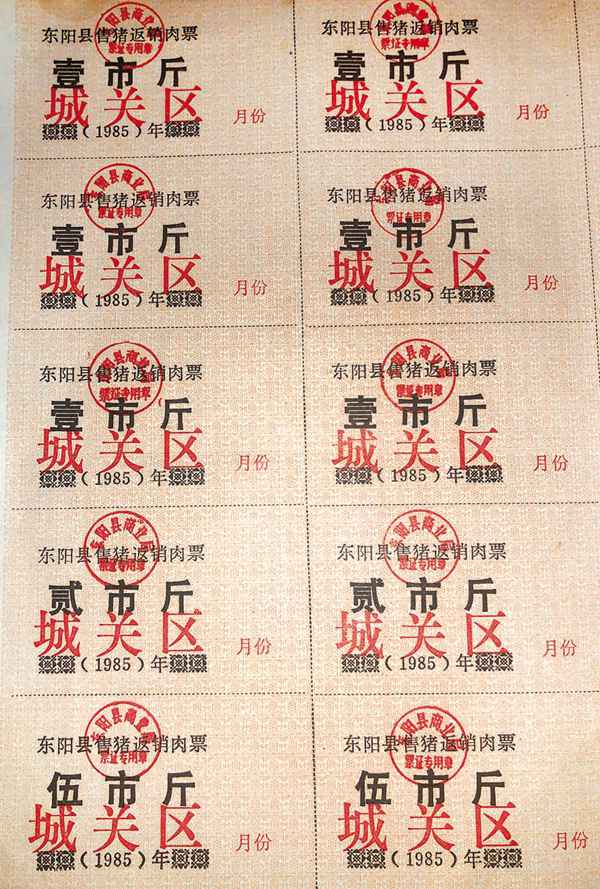 东阳县售猪返销肉票
东阳县商业局
票证专用章
壹市斤
城关区
月份
（1985）年
东阳县售猪返销肉票
东阳县商业局
票证专用章
壹市斤
城关区
月份
（1985）年
东阳县售猪返销肉票
东阳县商业局
票证专用章
壹市斤
城关区
月份
（1985）年
东阳县售猪返销肉票
东阳县商业局
票证专用章
壹市斤
城关区
月份
（1985）年
东阳县售猪返销肉票
东阳县商业局
票证专用章
壹市斤
城关区
月份
（1985）年
东阳县售猪返销肉票
东阳县商业局
票证专用章
壹市斤
城关区
月份
（1985）年
东阳县售猪返销肉票
东阳县商业局
票证专用章
贰市斤
城关区
月份
（1985）年
东阳县售猪返销肉票
东阳县商业局
票证专用章
贰市斤
城关区
月份
（1985）年
东阳县售猪返销肉票
东阳县商业局
票证专用章
伍市斤
城关区
月份
（1985）年
东阳县售猪返销肉票
东阳县商业局
票证专用章
伍市斤
城关区
月份
（1985）年